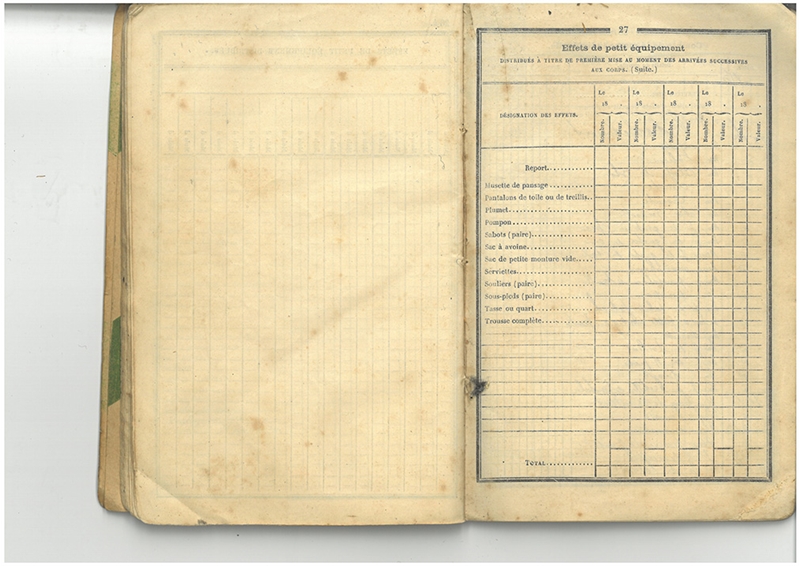 27
Effets de petit équipement
DISTRIBUÉS À TITRE DE PREMIÈRE MISE AU MOMENT DES ARRIVÉES SUCCESSIVES
AUX CORPS. (Suite.)
DÉSIGNATION DES EFFETS.
Le 18 . Le 18 . Le 18 . Le 18 . Le 18 .
Nombre. Valeur. Nombre. Valeur. Nombre. Valeur. Nombre. Valeur. Nombre. Valeur.
Report............
Musette de pansage............
Pantalons de toile ou de treillis..
Plumet....................
Pompon....................
Sabots (paire)...............
Sac à avoine.................
Sac de petite monture vide.....
Serviettes...................
Souliers (paire)..............
Sous-pieds (paire)............
Tasse ou quart...............
Trousse complète.............
TOTAL............